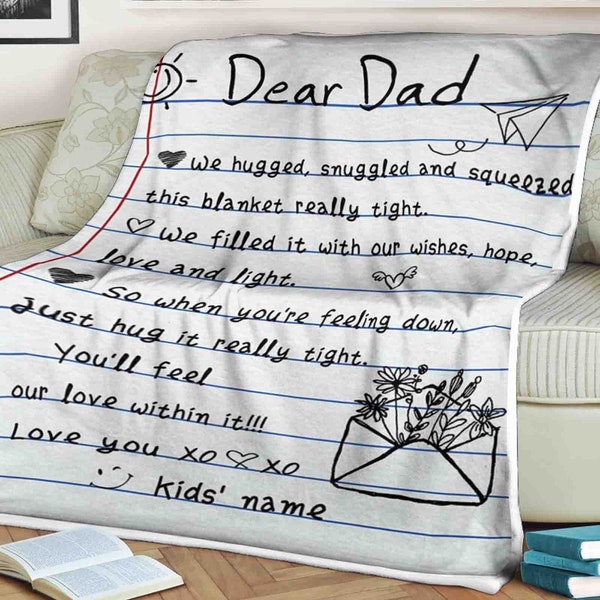 Dear Dad
we hugged, snuggled and squeezed
this blanket really tight.
we filled it with our wishes, hope,
love and light.
so when you're feeling down,
Just hug it really tight.
You'll feel
our love within it!!!
Love you xo xo
Kids' name